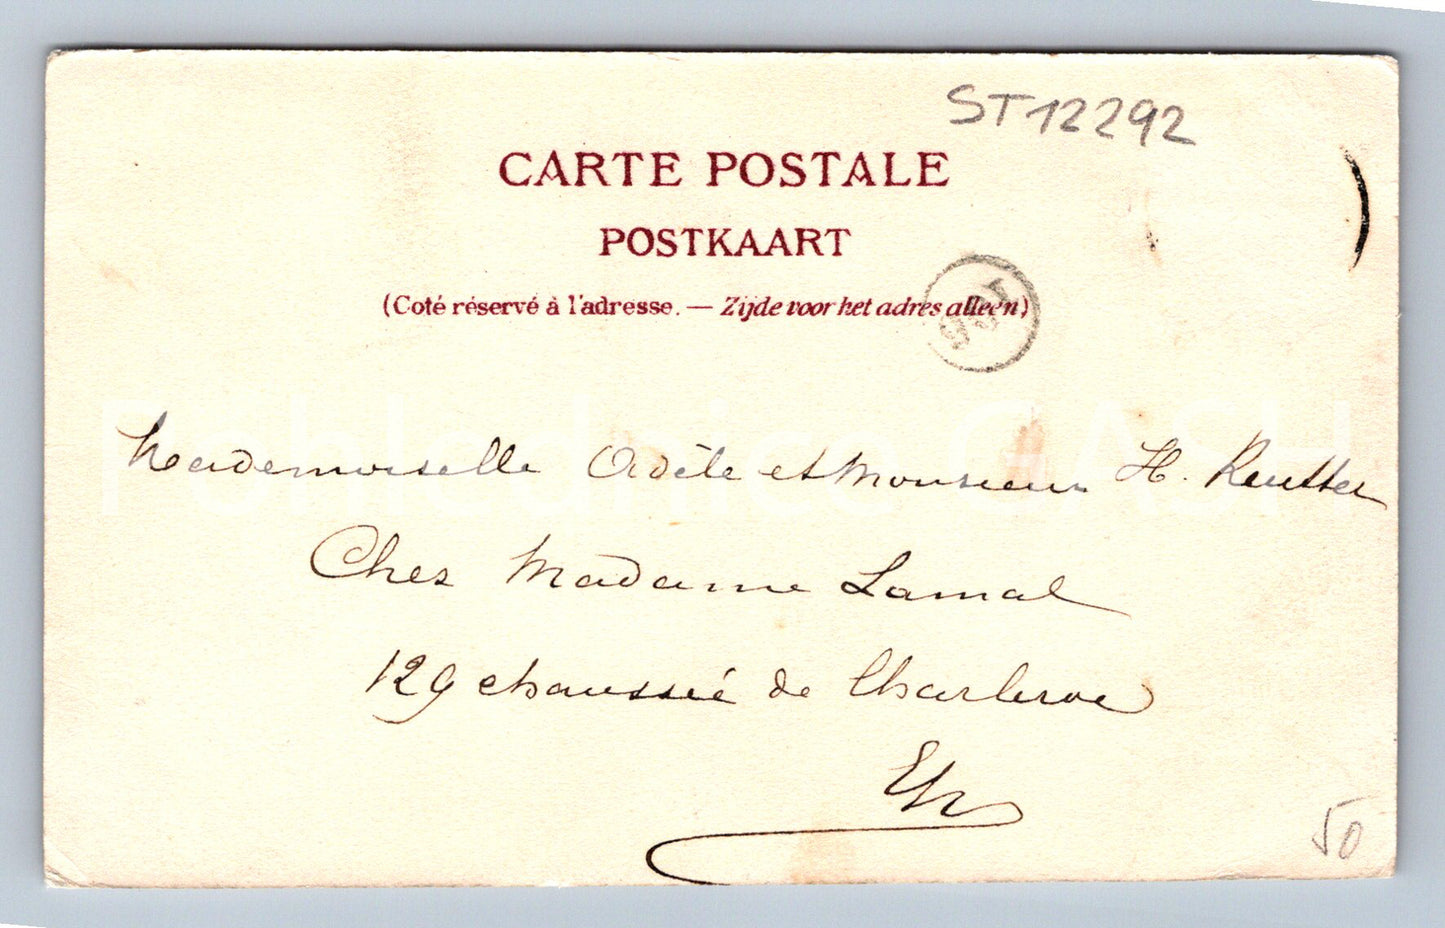 ST12292
CARTE POSTALE
POSTKAART
(Coté réservé à l'adresse. — Zijde voor het adres alleen)
Mademoiselle Adèle et Monsieur H. Reutter
Chez Madame Lamal
129 chaussée de Charleroi
50